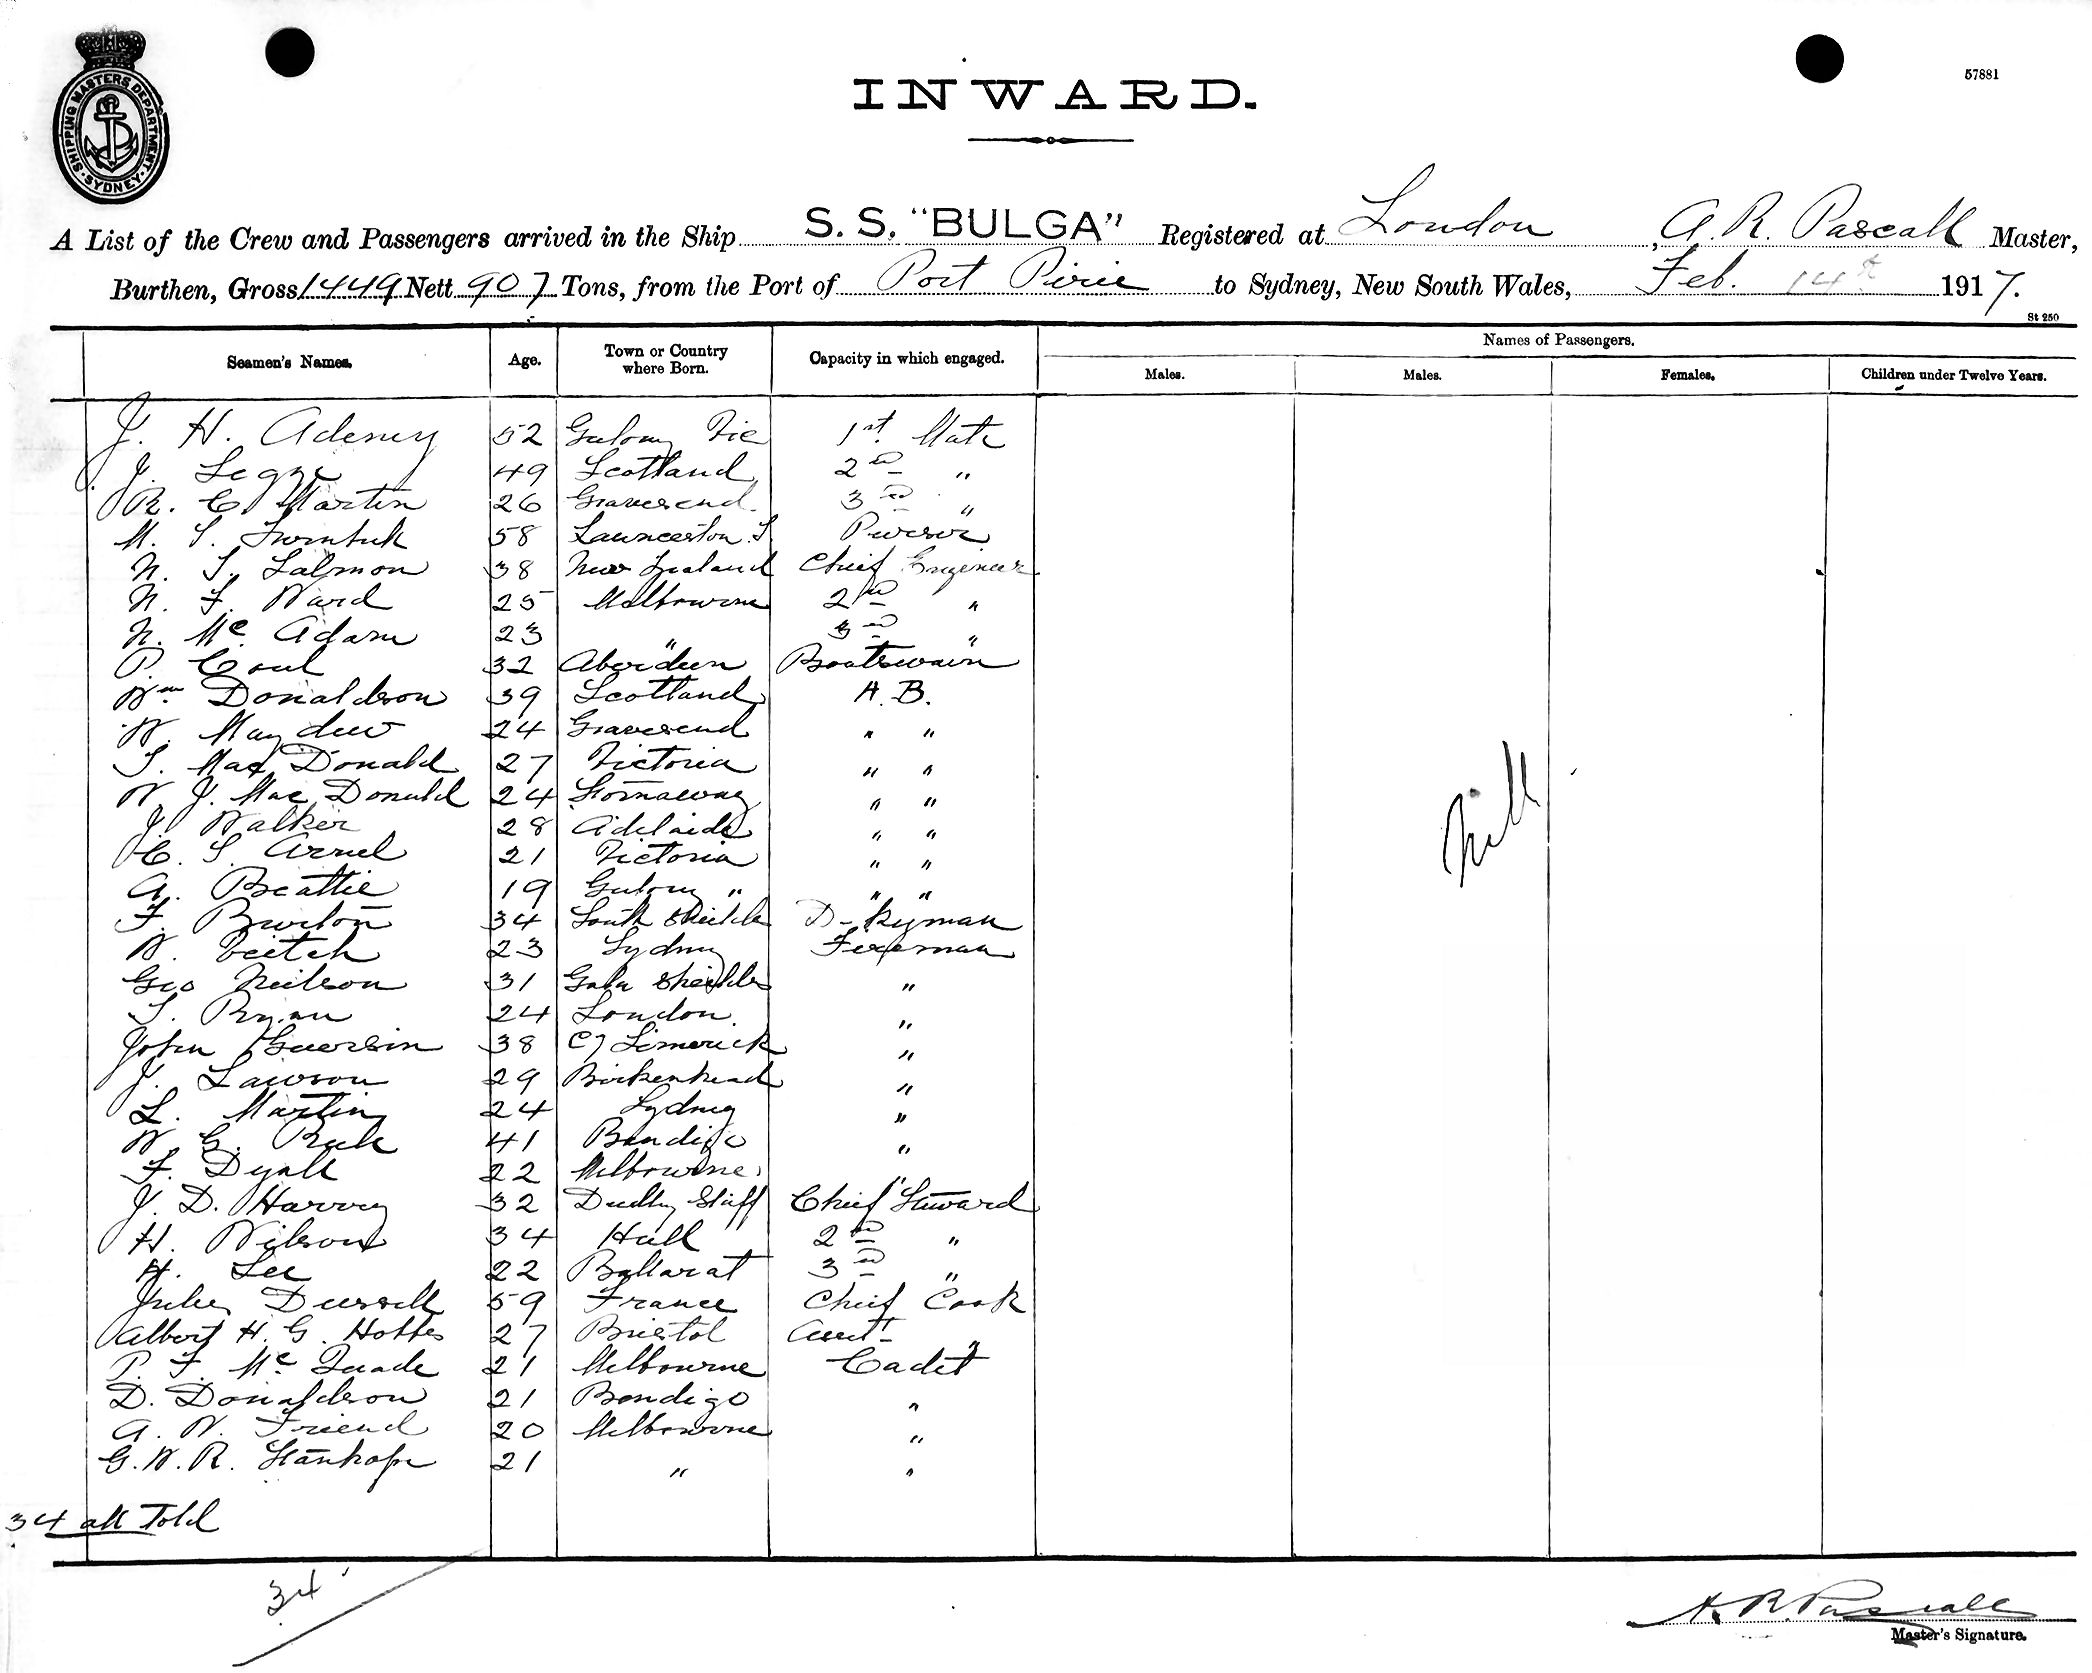 SHIPPING MASTERS DEPARTMENT. SYDNEY.
57881
INWARD.
A List of the Crew and Passengers arrived in the Ship S. S. "BULGA" Registered at London, A. R. Pascall Master,
Burthen, Gross 1449 Nett 907 Tons, from the Port of Port Pirie to Sydney, New South Wales, Feb. 14th 1917.
St 250
Seamen's Names. Age. Town or Country where Born. Capacity in which engaged. Names of Passengers.
Males. Males. Females. Children under Twelve Years.
J. H. Adeney 52 Geelong Vic 1st Mate
J. 49 Scotland 2nd "
R. C. Martin 26 Gravesend 3rd "
M. S. 58 Launceston T Purser
N. S. Salmon 38 New Zealand Chief Engineer
N. F. Ward 25 Melbourne 2nd "
N. Mc Adam 23 " 3rd "
P. Coul 32 Aberdeen Boatswain
Wm Donaldson 39 Scotland A. B.
W. Maydew 24 Gravesend " "
S. Mac Donald 27 Victoria " "
W J. Mac Donald 24 Stornaway " "
J. Walker 28 Adelaide " "
C. S. Arrel 21 Victoria " "
A. Beattie 19 Geelong " " "
F. Burton 34 South Shields D-kyman
W. Veitch 23 Sydney Fireman
Geo Neilson 31 Gala Shields "
S. Ryan 24 London "
John Guerin 38 Cy Limerick "
J. Lawson 29 Birkenhead "
L. Martin 24 Sydney "
W. G. 41 Bendigo "
F. Dyall 22 Melbourne "
J. D. Harvey 32 Dudley Staff Chief Steward
H. Wilson 34 Hull 2nd "
H. Lee 22 Ballarat 3rd "
Jules 59 France Chief Cook
Albert H. G. Hobbs 27 Bristol Asst "
P. F. Mc Quade 21 Melbourne Cadet
D. Donaldson 21 Bendigo "
A. W. Friend 20 Melbourne "
G. W. R. Stanhope 21 " "
Nill
34 all Told
34
A. R. Pascall
Master's Signature.